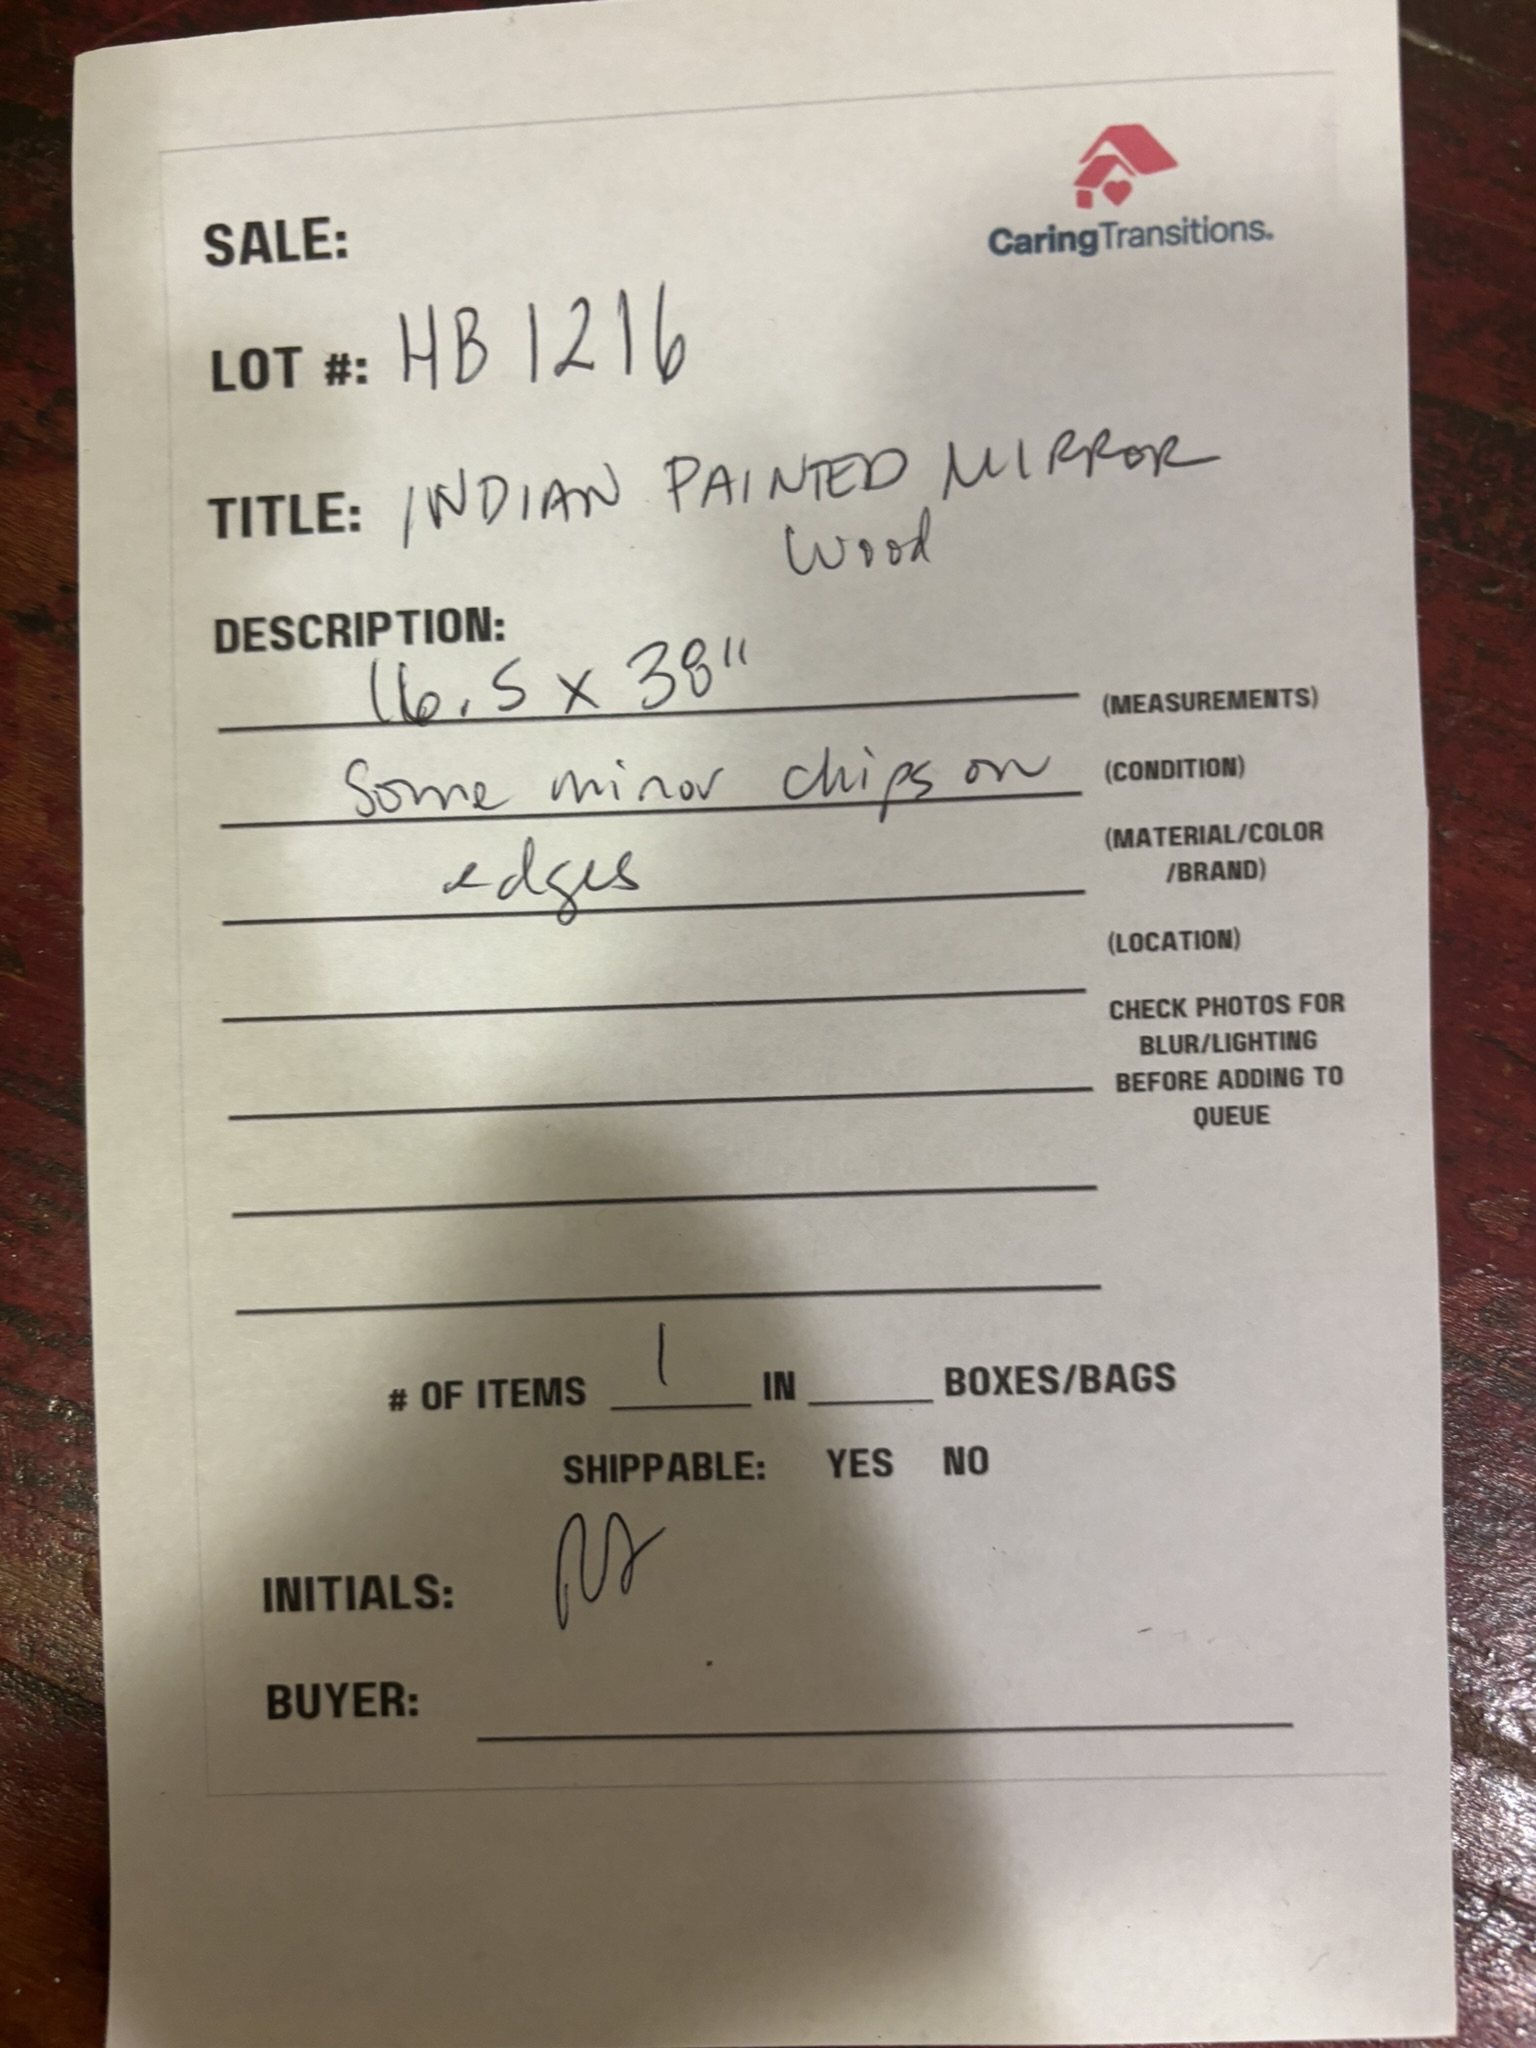 CaringTransitions.
SALE:
LOT #: HB 1216
TITLE: INDIAN PAINTED MIRROR
Wood
DESCRIPTION:
16.5 x 38" (MEASUREMENTS)
Some minor chips on (CONDITION)
edges (MATERIAL/COLOR
/BRAND)
(LOCATION)
CHECK PHOTOS FOR
BLUR/LIGHTING
BEFORE ADDING TO
QUEUE
# OF ITEMS 1 IN BOXES/BAGS
SHIPPABLE: YES NO
INITIALS:
BUYER: